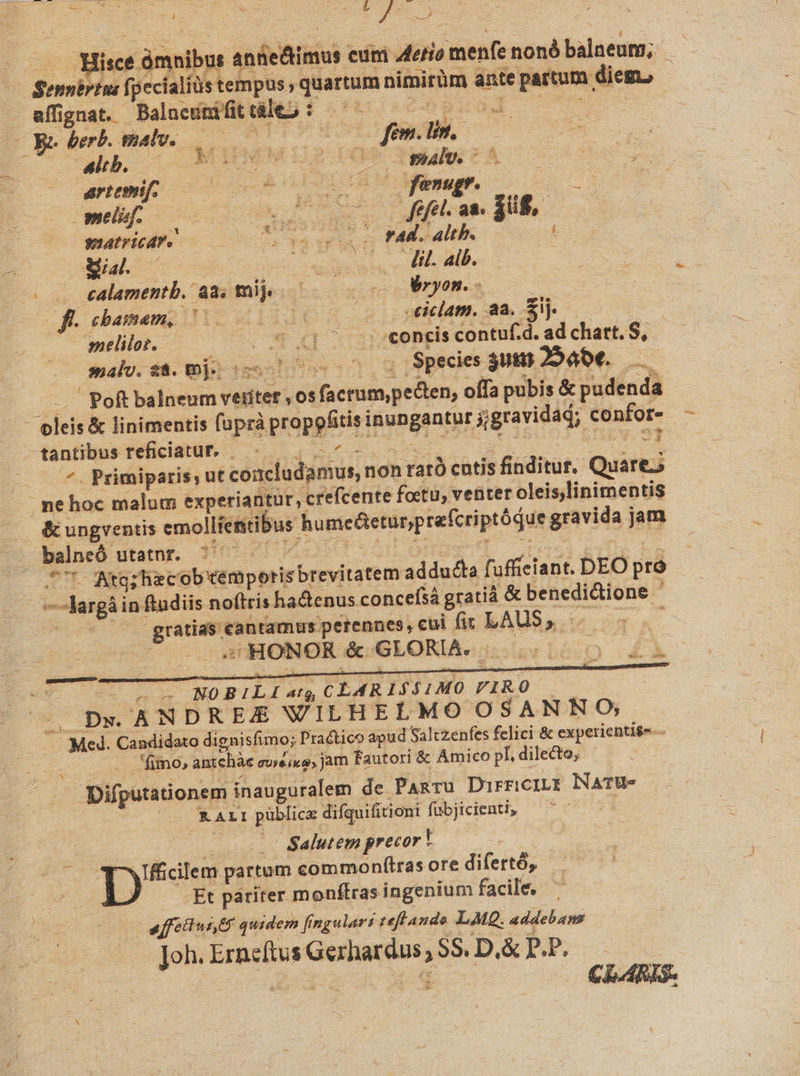 Hisce omnibus annectimus cum Aetio menſe nonô balneum;
Sennertus ſpecialiùs tempus, quartum nimirùm ante partum diem
aſſignat. Balneum fit tale:
℞. herb. malv.
alth.
artemiſ.
meliſſ.
matricar.
Vial.
calamenth. aa. mij.
fl. chamæm,
melilot.
malv. aa. mj.
ſem. lin.
malv.
fœnugr.
ſeſel. aa. ℥iiß,
rad. alth.
lil. alb.
bryon.
ciclam. aa. ℥ij.
concis contuſ. d. ad chart. S,
Species zum Bade.
Poſt balneum venter, os ſacrum, pecten, oſſa pubis & pudenda
oleis & linimentis ſuprà propoſitis inungantur; gravidaq; confor-
tantibus reficiatur.
Primiparis, ut concludamus, non rarò cutis finditur. Quare
ne hoc malum experiantur, creſcente fœtu, venter oleis, linimentis
& ungventis emollientibus humectetur, præſcriptóque gravida jam
balneô utatur.
Atq; hæc ob temporis brevitatem adducta ſufficiant. DEO pro
largâ in ſtudiis noſtris hactenus conceſsâ gratiâ & benedictione
gratias cantamus perennes, cui ſit LAUS,
HONOR & GLORIA.
NOBILI atq, CLARISSIMO VIRO
Dn. ANDREÆ WILHELMO OSANNO,
Med. Candidato digniſſimo; Practico apud Saltzenſes felici & experientiſ-
ſimo, antehâc
jam Fautori & Amico pl. dilecto,
Diſputationem inauguralem de PARTU DIFFICILI NATU-
RALI publicæ diſquiſitioni ſubjicienti,
Salutem precor!
Difficilem partum commonſtras ore diſertô,
Et pariter monſtras ingenium facile.
affectui, & quidem ſingulari teſtando LMQ. addebam
Joh. Erneſtus Gerhardus, SS. D. & P.P.
CLARIS-